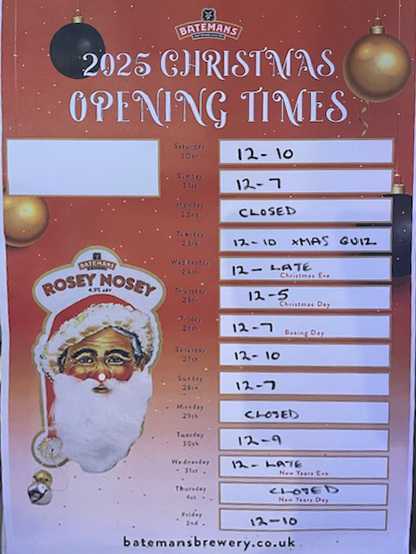 BATEMANS
2025 CHRISTMAS
OPENING TIMES
Saturday 20th 12-10
Sunday 21st 12-7
Monday 22nd CLOSED
Tuesday 23rd 12-10 XMAS QUIZ
Wednesday 24th 12-LATE Christmas Eve
Thursday 25th 12-5 Christmas Day
Friday 26th 12-7 Boxing Day
Saturday 27th 12-10
Sunday 28th 12-7
Monday 29th CLOSED
Tuesday 30th 12-9
Wednesday 31st 12-LATE New Years Eve
Thursday 1st CLOSED New Years Day
Friday 2nd 12-10
BATEMANS
ROSEY NOSEY
4.9% ABV
batemansbrewery.co.uk